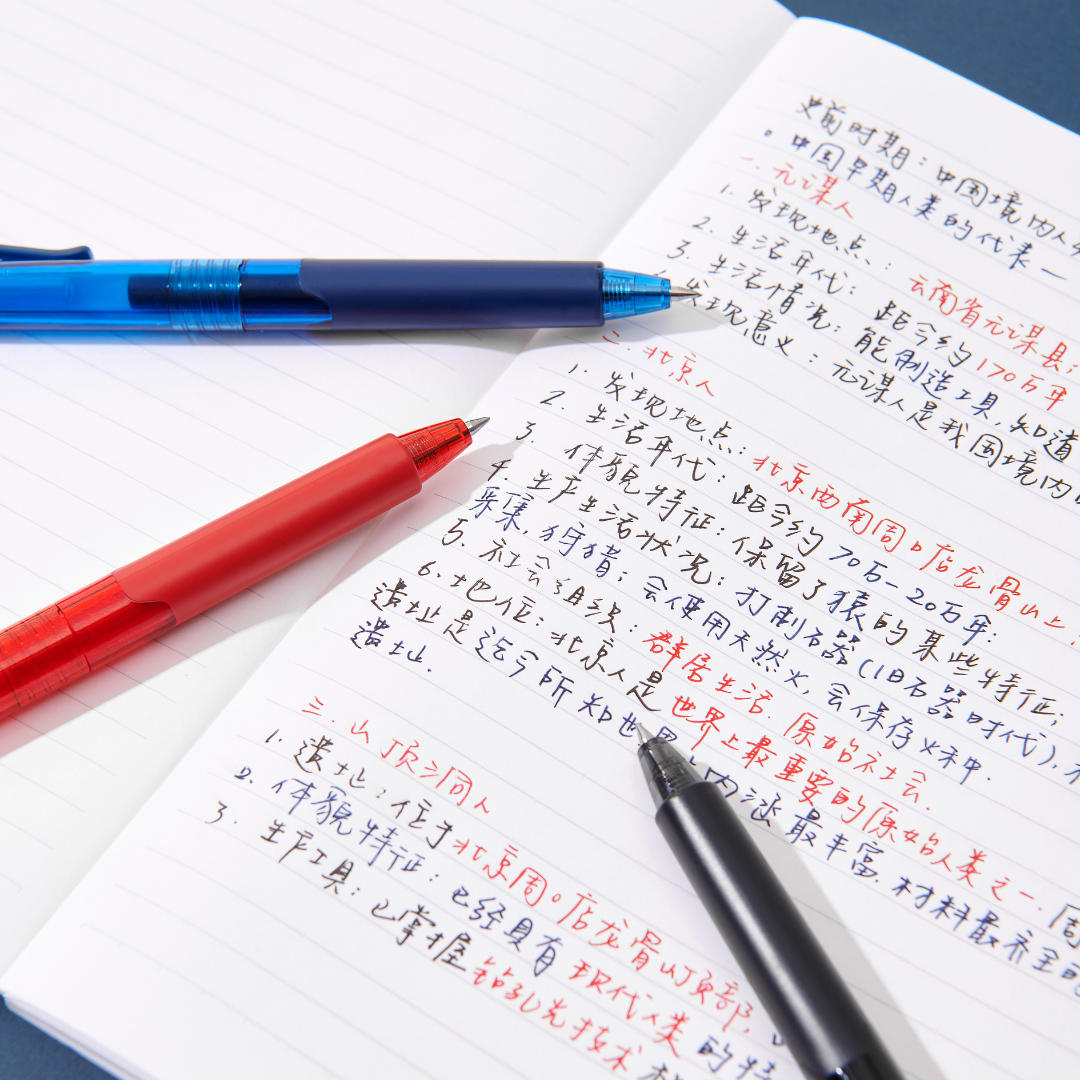 史前时期：中国境内人
。中国早期人类的代表一
一、元谋人
1. 发现地点：云南省元谋县；
2. 生活年代：距今约170万年
3. 生活情况：能制造工具，知道
发现意义：元谋人是我国境内
二、北京人
1. 发现地点：北京西南周口店龙骨山上；
2. 生活年代：距今约70万-20万年；
3. 体貌特征：保留了猿的某些特征；
4. 生产生活状况：打制石器（旧石器时代），
采集，狩猎；会使用天然火，会保存火种.
5. 社会组织：群居生活. 原始社会.
6. 地位：北京人是世界上最重要的原始人类之一. 周
遗址是迄今所知世界 内涵最丰富. 材料最齐全的
遗址.
三、山顶洞人
1. 遗址：位于北京周口店龙骨山顶部，
2. 体貌特征：已经具有现代人类的特
3. 生产工具：已掌握钻孔技术